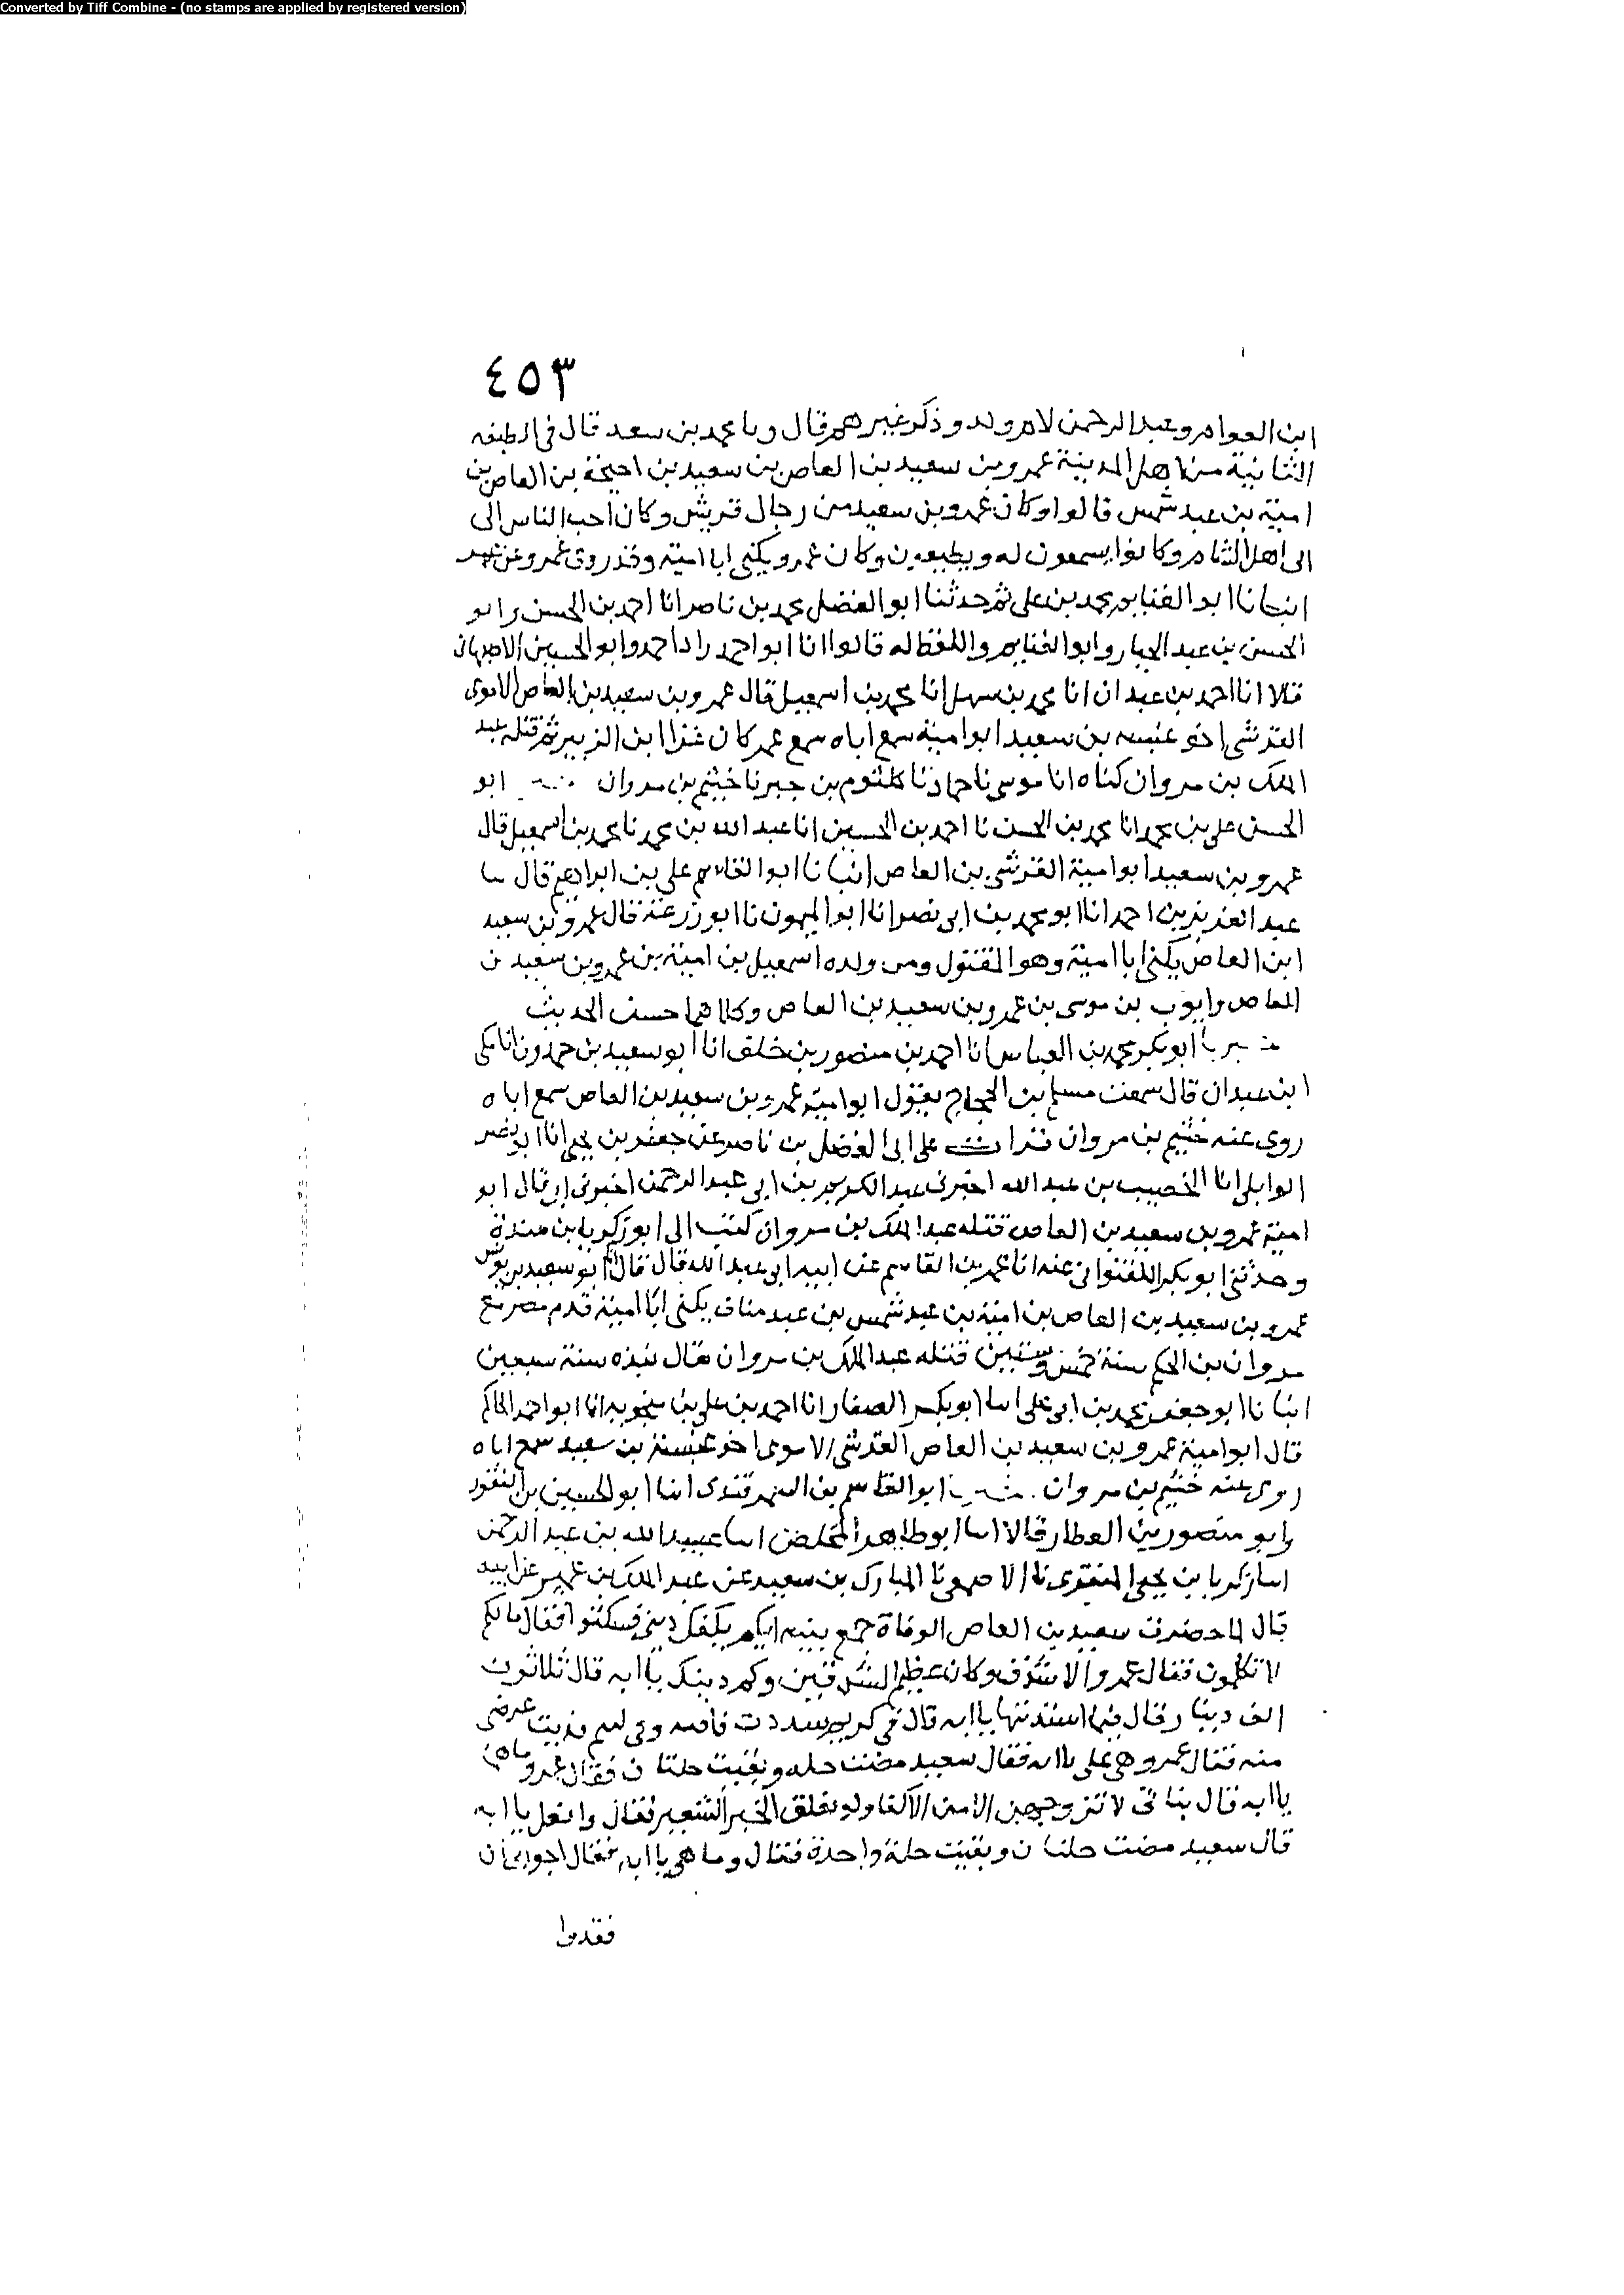 Converted by Tiff Combine - (no stamps are applied by registered version)
٤٥٣
ابن العوام وعبد الرحمن لام ولد وذكر غيرهم قال ونا محمد بن سعد قال في الطبقه
الثانية من اهل المدينة عمرو بن سعيد بن العاص بن سعيد بن احيحة بن العاص بن
امية بن عبد شمس قالوا وكان عمرو بن سعيد من رجال قريش وكان احب الناس الى
الى اهل الشام وكانوا يسمعون له ويطيعون وكان عمرو يكنى ابا امية وقد روى عمرو عن عمر
انبانا ابو الغنايم محمد بن علي ثم حدثنا ابو الفضل محمد بن ناصر انا احمد بن الحسن وابو
الحسن بن عبد الجبار وابو الغنايم واللفظ له قالوا انا ابو احمد زاد احمد وابو الحسين الاصبهاني
قالا انا احمد بن عبدان انا محمد بن سهل انا محمد بن اسمعيل قال عمرو بن سعيد بن العاص الاموى
القرشي اخو عنبسه بن سعيد ابو امية سمع اباه سمع عمر كان غزا ابن الزبير ثم قتله عبد
الملك بن مروان كناه انا موسى نا حماد نا كلثوم بن جبر نا خثيم بن مروان ابو
الحسن علي بن محمد انا محمد بن الحسن نا احمد بن الحسين انا عبد الله بن محمد نا محمد بن اسمعيل قال
عمرو بن سعيد ابو امية القرشي بن العاص انبانا ابو القاسم علي بن ابراهيم قال نا
عبد العزيز بن احمد انا ابو محمد بن ابي نصر انا ابو الميمون نا ابو زرعة قال عمرو بن سعيد
ابن العاص يكنى ابا امية وهو المقتول ومن ولده اسمعيل بن امية بن عمرو بن سعيد بن
العاص وايوب بن موسى بن عمرو بن سعيد بن العاص وكلاهما حسن الحديث
ابو بكر محمد بن العباس انا احمد بن منصور بن خلف انا ابو سعيد بن حمدون انا مكي
ابن عبدان قال سمعت مسلم بن الحجاج يقول ابو امية عمرو بن سعيد بن العاص سمع اباه
روى عنه خثيم بن مروان قرات على ابي الفضل بن ناصر عن جعفر بن يحيى انا ابو نصر
الوايلي انا الخصيب بن عبد الله اخبرني عبد الكريم بن ابي عبد الرحمن اخبرني ابي قال ابو
امية عمرو بن سعيد بن العاص قتله عبد الملك بن مروان كتب الى ابو زكريا بن مندة
وحدثني ابو بكر اللفتواني عنه انا عمر بن القاسم عن ابيه ابي عبد الله قال قال لنا ابو سعيد بن يونس
عمرو بن سعيد بن العاص بن امية بن عبد شمس بن عبد مناف يكنى ابا امية قدم مصر مع
مروان بن الحكم سنة خمس وستين قتله عبد الملك بن مروان يقال بيده سنة سبعين
انبانا ابو جعفر محمد بن ابي علي انا ابو بكر الصفار انا احمد بن علي بن منجويه انا ابو احمد الحاكم
قال ابو امية عمرو بن سعيد بن العاص القرشي الاموى اخو عنبسة بن سعيد سمع اباه
روى عنه خثيم بن مروان ابو القاسم بن السمرقندى انا ابو الحسين بن النقور
وابو منصور بن العطار قالا انا ابو طاهر المخلص انا عبيد الله بن عبد الرحمن
انا زكريا بن يحيى المنقرى نا الاصمعي نا المبارك بن سعيد عن عبد الملك بن عمير عن ابيه
قال لما حضرت سعيد بن العاص الوفاة جمع بنيه ايكم يكفل ديني فسكتوا فقال ما لكم
لا تكلمون فقال عمرو الاشدق وكان عظيم الشدقين وكم دينك يا ابه قال ثلاثون
الف دينار قال فيما استدنتها يا ابه قال في كريم سددت فاقته وفي لئيم فديت عرضي
منه فقال عمرو هي علي يا ابه فقال سعيد مضت خله وبقيت خلتان فقال عمرو ما هما
يا ابه قال بناتي لا تزوجهن الا من الاكفا ولو بفلق الخبز الشعير فقال وافعل يا ابه
قال سعيد مضت خلتان وبقيت خلة واحدة فقال وما هي يا ابه فقال اخواني ان
فقدوا